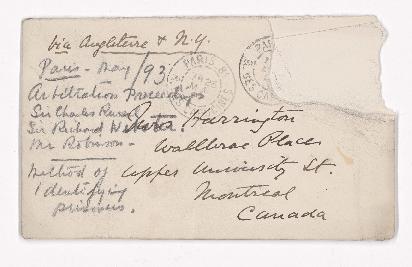 Via Angleterre & N.Y.
Paris - May /93
Arbitration Proceedings
Sir Charles Russell
Sir Richard Webster.
Mr Robinson -
Method of
Identifying
prisoners.
Mrs Harrington
Wallbrae Place
Upper University St.
Montreal
Canada
PARIS